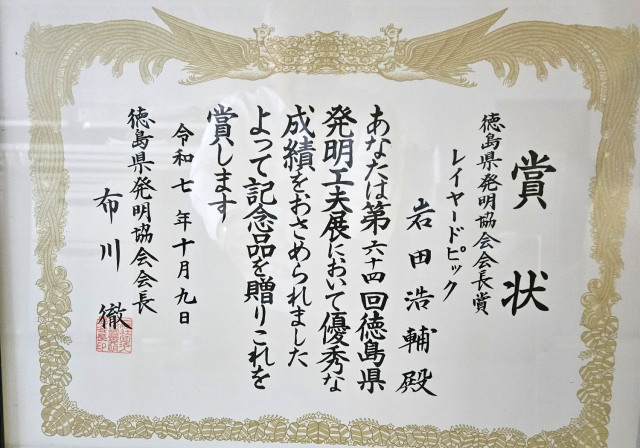 賞状
徳島県発明協会会長賞
レイヤードピック
岩田浩輔殿
あなたは第六十四回徳島県
発明工夫展において優秀な
成績をおさめられました
よって記念品を贈りこれを
賞します
令和七年十月九日
徳島県発明協会会長
布川徹